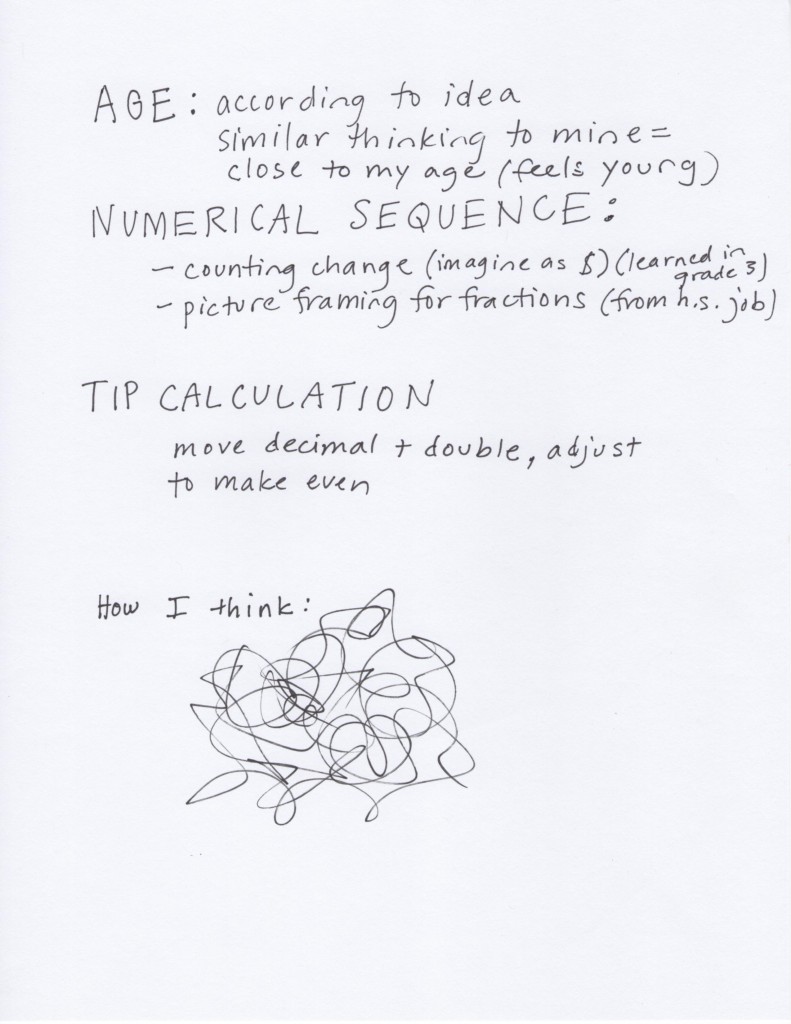 AGE: according to idea
similar thinking to mine =
close to my age (feels young)
NUMERICAL SEQUENCE:
- counting change (imagine as $) (learned in
grade 3)
- picture framing for fractions (from h.s. job)
TIP CALCULATION
move decimal + double, adjust
to make even
How I think: